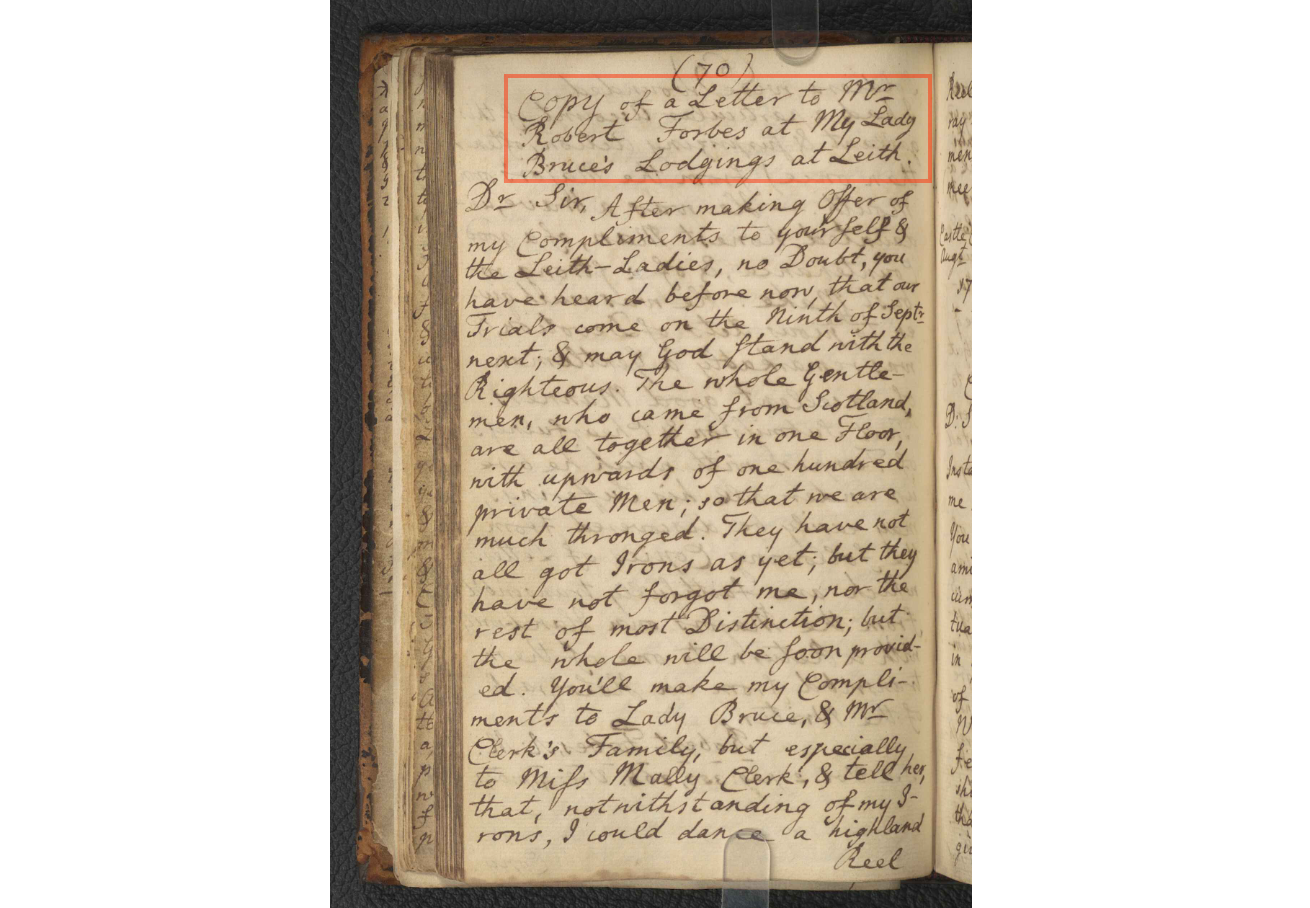 (70)
Copy of a Letter to Mr
Robert Forbes at My Lady
Bruce's Lodgings at Leith.
Dr Sir, After making Offer of
my Compliments to your self &
the Leith-Ladies, no Doubt, you
have heard before now, that our
Trials come on the Ninth of Septr
next; & may God stand with the
Righteous. The whole Gentle-
men, who came from Scotland,
are all together in one Floor,
with upwards of one hundred
private Men; so that we are
much thronged. They have not
all got Irons as yet; but they
have not forgot me, nor the
rest of most Distinction; but
the whole will be soon provid-
ed. You'll make my Compli-
ments to Lady Bruce, & Mr
Clerk's Family, but especially
to Miss Mally Clerk, & tell her,
that, notwithstanding of my I-
rons, I could dance a highland
Reel